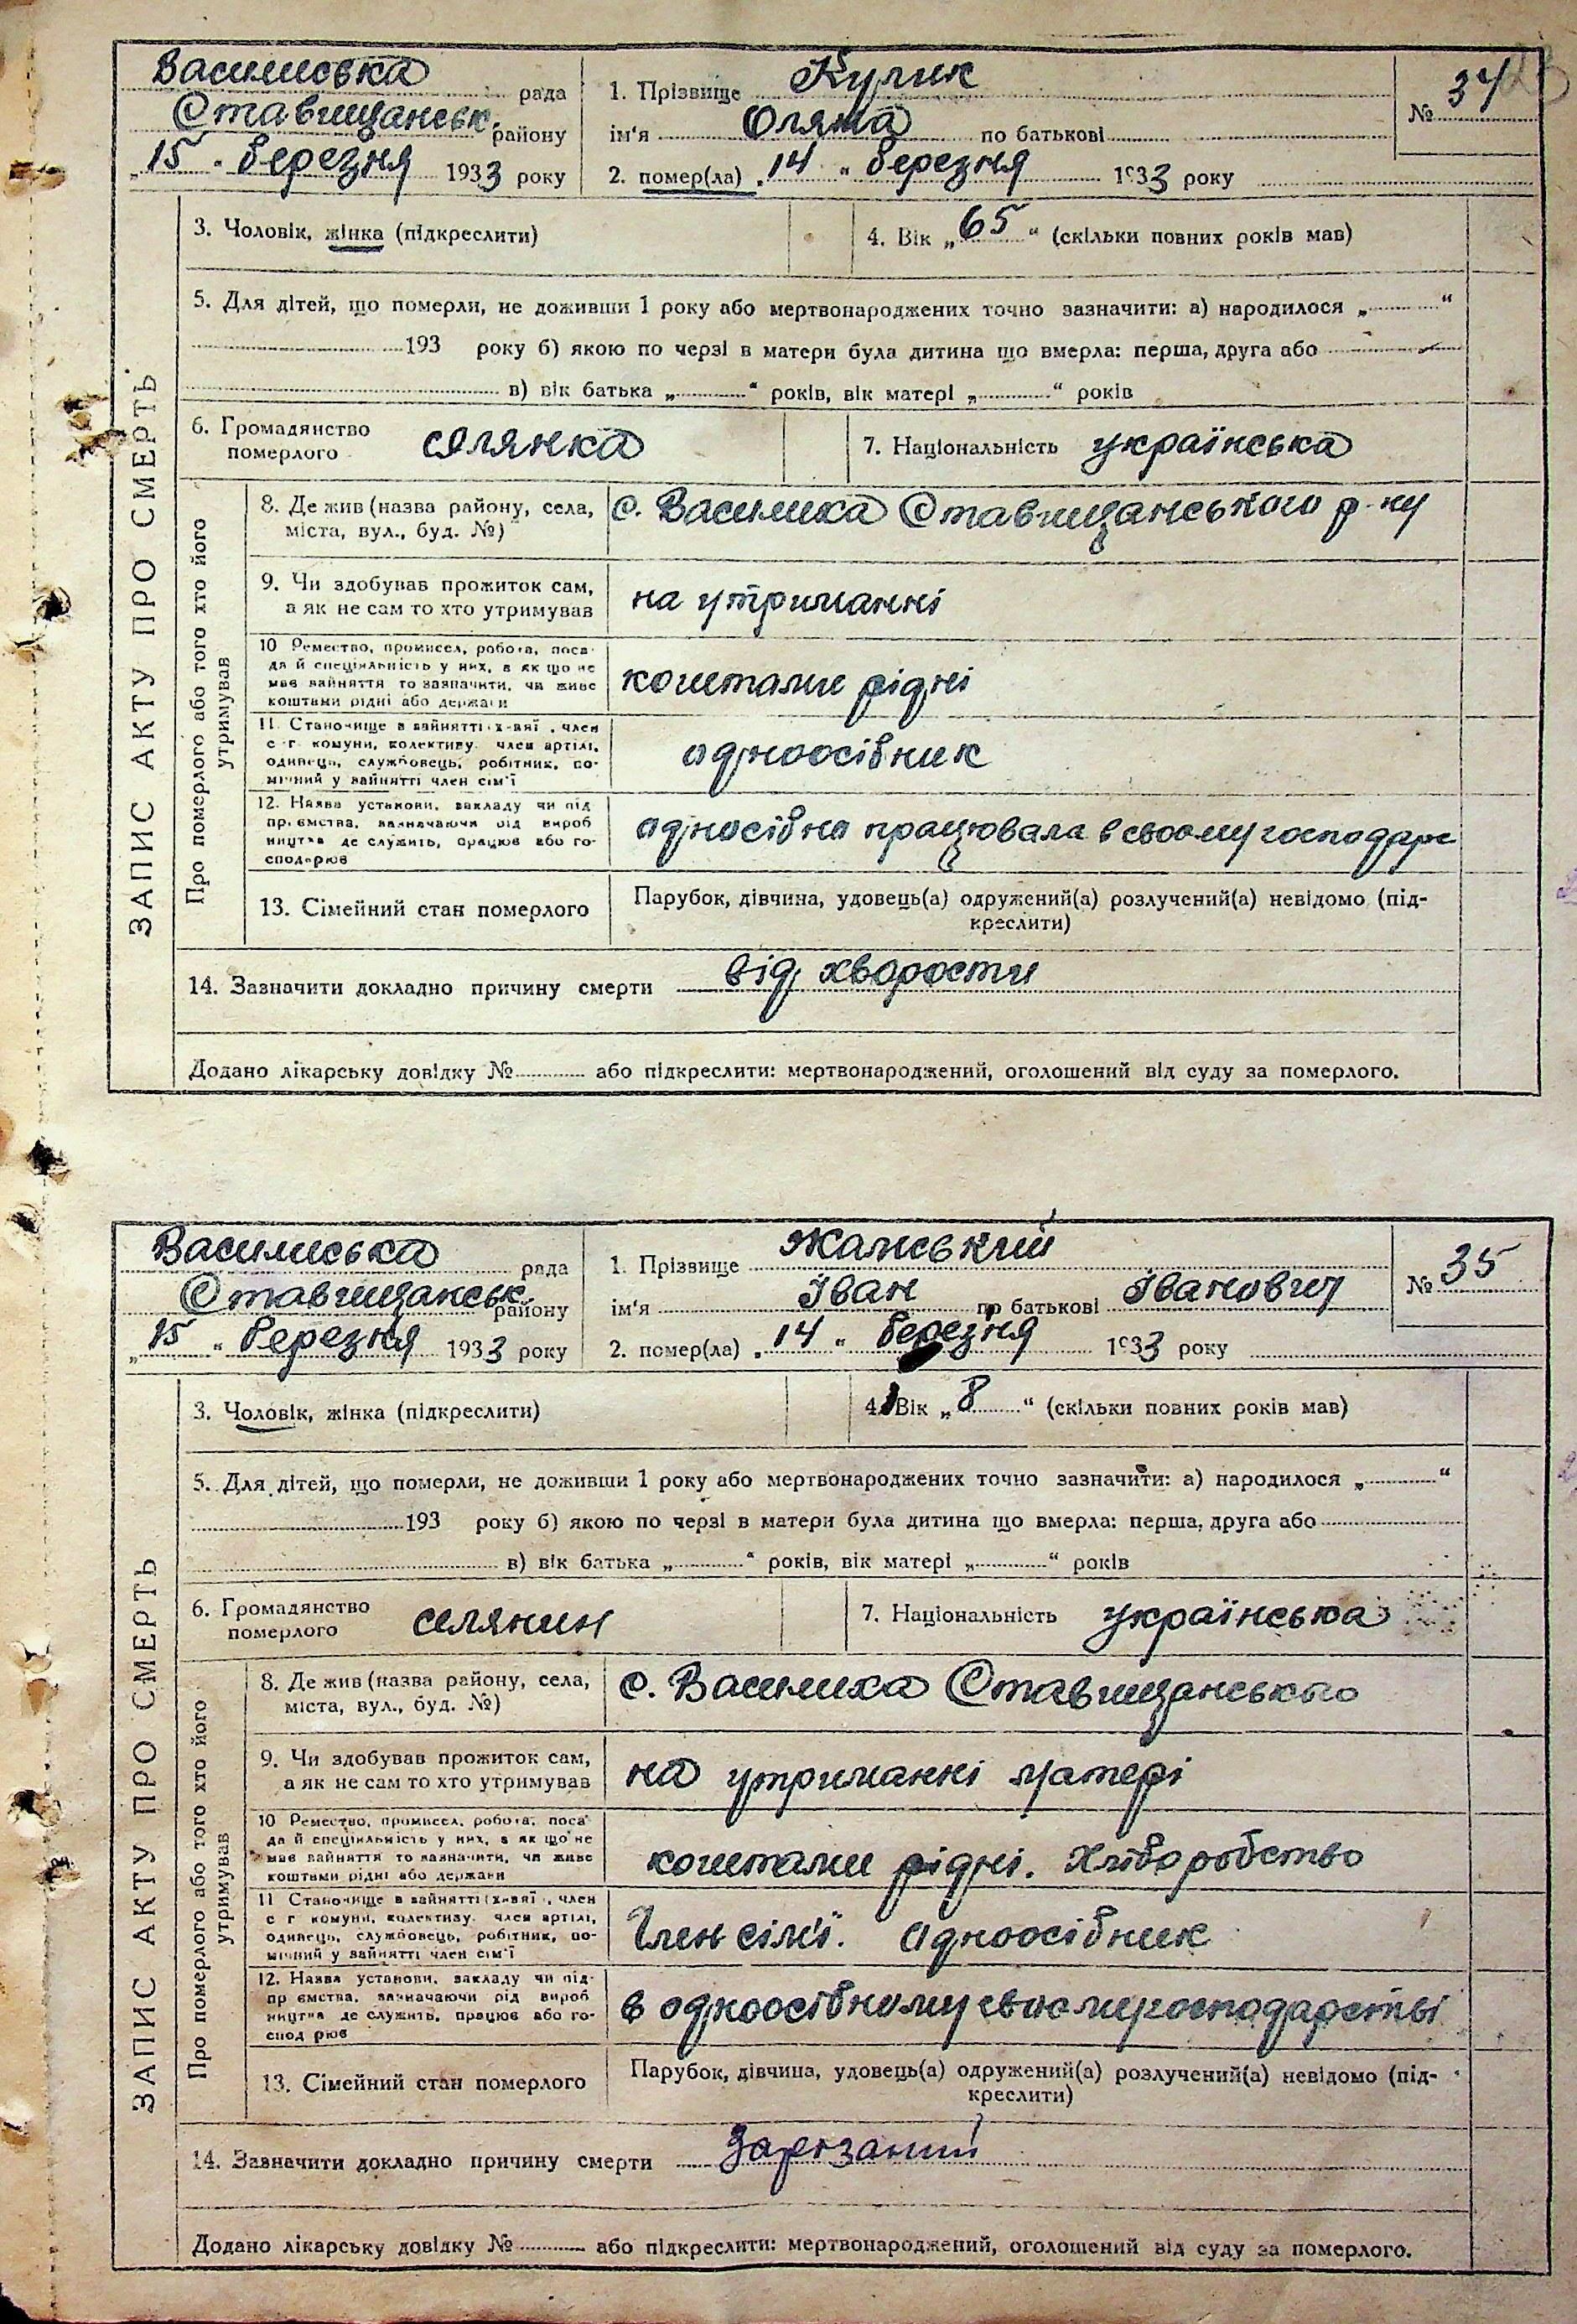 Василиська рада
Ставищанськ. району
„15„ березня 1933 року
1. Прізвище Кулик
ім'я Оляна по батькові
2. помер(ла) „14„ березня 1933 року
№ 34
3. Чоловік, жінка (підкреслити)
4. Вік „65“ (скільки повних років мав)
5. Для дітей, що померли, не доживши 1 року або мертвонароджених точно зазначити: а) народилося „ “
193 року б) якою по черзі в матери була дитина що вмерла: перша, друга або
в) вік батька „ “ років, вік матері „ “ років
6. Громадянство
померлого
селянка
7. Національність українська
ЗАПИС АКТУ ПРО СМЕРТЬ
Про померлого або того хто його
утримував
8. Де жив (назва району, села,
міста, вул., буд. №)
с. Василиха Ставищанського р-ну
9. Чи здобував прожиток сам,
а як не сам то хто утримував
на утриманні
10 Ремество, промисел, робота, поса-
да й спеціяльність у них, а як що не
має зайняття то зазначити, чи живе
коштами рідні або держави
коштами рідні
11. Становище в зайнятті, член
с г комуни, колективу член артілі,
одинець, службовець, робітник, по-
мічний у зайнятті член сім'ї
одноосібник
12. Назва установи, закладу чи під
приємства, зазначаючи рід вироб
ництва де служить, працює або го-
сподарює
односібно працювала в своому господарс
13. Сімейний стан померлого
Парубок, дівчина, удовець(а) одружений(а) розлучений(а) невідомо (під-
креслити)
14. Зазначити докладно причину смерти від хворости
Додано лікарську довідку № або підкреслити: мертвонароджений, оголошений від суду за померлого.
Василиська рада
Ставищанськ. району
„15“ березня 1933 року
1. Прізвище
ім'я Іван по батькові Іванович
2. помер(ла) „14„ березня 1933 року
№ 35
3. Чоловік, жінка (підкреслити)
4. Вік „8“ (скільки повних років мав)
5. Для дітей, що померли, не доживши 1 року або мертвонароджених точно зазначити: а) народилося „ “
193 року б) якою по черзі в матери була дитина що вмерла: перша, друга або
в) вік батька „ “ років, вік матері „ “ років
6. Громадянство
померлого
селянин
7. Національність українська
ЗАПИС АКТУ ПРО СМЕРТЬ
Про померлого або того хто його
утримував
8. Де жив (назва району, села,
міста, вул., буд. №)
с. Василиха Ставищанського
9. Чи здобував прожиток сам,
а як не сам то хто утримував
на утриманні матері
10 Ремество, промисел, робота, поса
да й спеціяльність у них, а як що не
має зайняття то зазначити, чи живе
коштами рідні або держави
коштами рідні. Хліборобство
11 Становище в зайнятті, член
с г комуни, колективу член артілі,
одинець, службовець, робітник, по-
мічний у зайнятті член сім'ї
Член сім'ї. Одноосібник
12. Назва установи, закладу чи під-
приємства, зазначаючи рід вироб
ництва де служить, працює або го-
сподарює
в одноосібному своєму господарстві
13. Сімейний стан померлого
Парубок, дівчина, удовець(а) одружений(а) розлучений(а) невідомо (під-
креслити)
14. Зазначити докладно причину смерти Зарізаний
Додано лікарську довідку № або підкреслити: мертвонароджений, оголошений від суду за померлого.